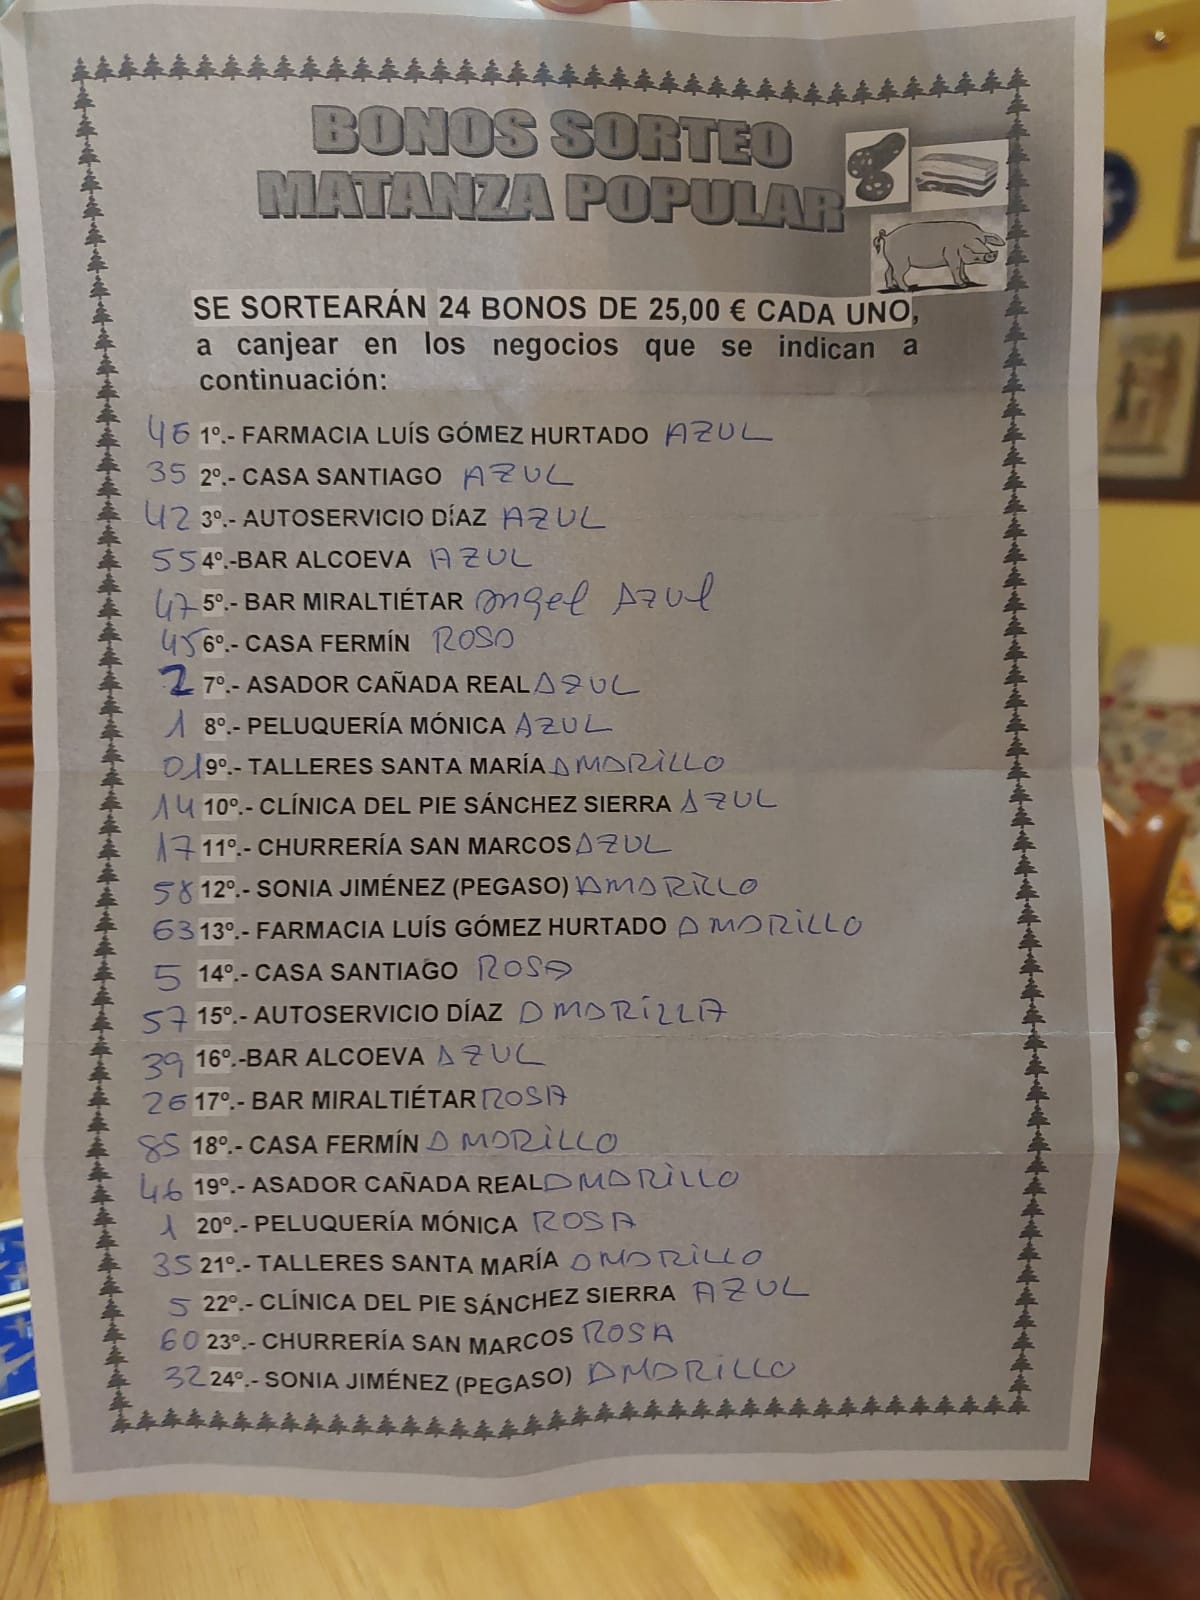 BONOS SORTEO
MATANZA POPULAR
SE SORTEARÁN 24 BONOS DE 25,00 € CADA UNO,
a canjear en los negocios que se indican a
continuación:
46 1º.- FARMACIA LUÍS GÓMEZ HURTADO AZUL
35 2º.- CASA SANTIAGO AZUL
42 3º.- AUTOSERVICIO DÍAZ AZUL
55 4º.-BAR ALCOEVA AZUL
47 5º.- BAR MIRALTIÉTAR Angel AZUl
45 6º.- CASA FERMÍN ROSA
2 7º.- ASADOR CAÑADA REAL AZUL
1 8º.- PELUQUERÍA MÓNICA AZUL
01 9º.- TALLERES SANTA MARÍA AMARILLO
14 10º.- CLÍNICA DEL PIE SÁNCHEZ SIERRA AZUL
17 11º.- CHURRERÍA SAN MARCOS AZUL
58 12º.- SONIA JIMÉNEZ (PEGASO) AMARILLO
63 13º.- FARMACIA LUÍS GÓMEZ HURTADO AMARILLO
5 14º.- CASA SANTIAGO ROSA
57 15º.- AUTOSERVICIO DÍAZ AMARILLA
39 16º.-BAR ALCOEVA AZUL
26 17º.- BAR MIRALTIÉTAR ROSA
85 18º.- CASA FERMÍN AMARILLO
46 19º.- ASADOR CAÑADA REAL AMARILLO
1 20º.- PELUQUERÍA MÓNICA ROSA
35 21º.- TALLERES SANTA MARÍA AMARILLO
5 22º.- CLÍNICA DEL PIE SÁNCHEZ SIERRA AZUL
60 23º.- CHURRERÍA SAN MARCOS ROSA
32 24º.- SONIA JIMÉNEZ (PEGASO) AMARILLO